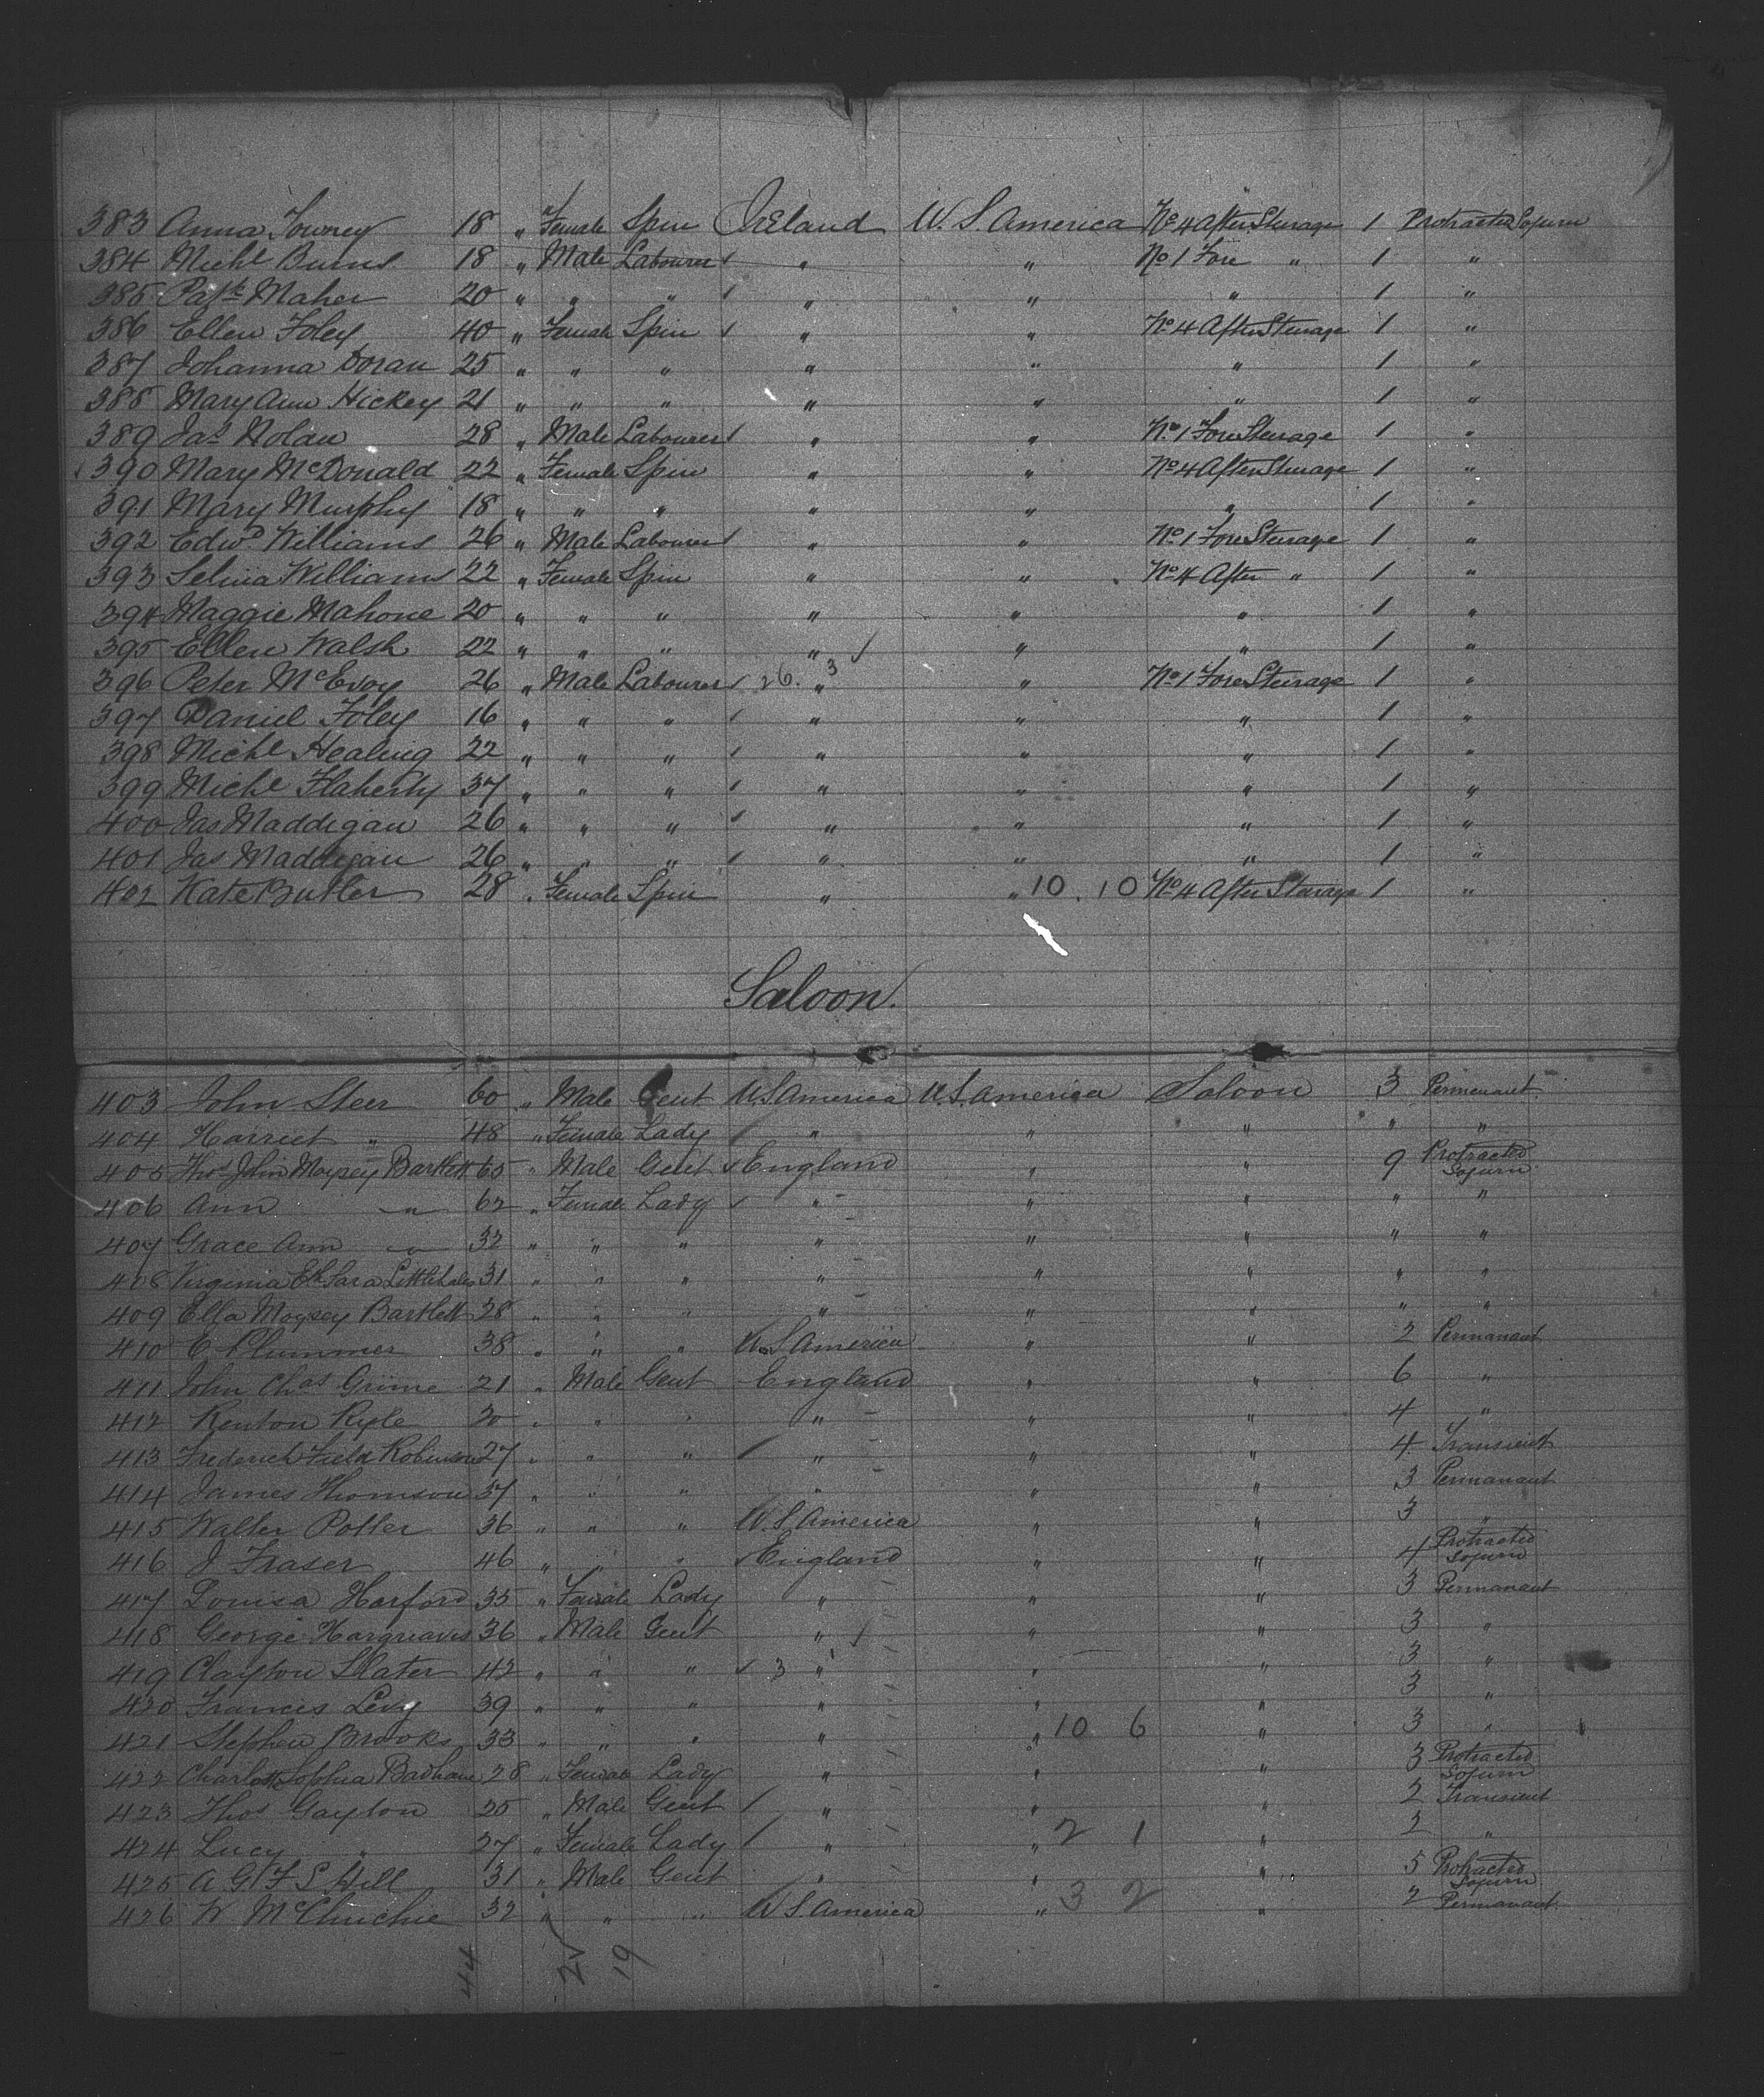 383 Anna Towney 18 " Female Spin Ireland U.S. America No 4 After Sterage 1 Protracted Sojurn
384 Michl Burns 18 " Male Labourer " " No 1 Fore " 1 "
385 Patk Maher 20 " " " " " " 1 "
386 Ellen Foley 40 " Female Spin " " No 4 After Sterage 1 "
387 Johanna Doran 25 " " " " " " 1 "
388 Mary Ann Hickey 21 " " " " " " 1 "
389 Jas Nolan 28 " Male Labourer " " No 1 Fore Sterage 1 "
390 Mary McDonald 22 " Female Spin " " No 4 After Sterage 1 "
391 Mary Murphy 18 " " " " " " 1 "
392 Edwd Williams 26 " Male Labourer " " No 1 Fore Sterage 1 "
393 Selina Williams 22 " Female Spin " " No 4 After " 1 "
394 Maggie Mahone 20 " " " " " " 1 "
395 Ellen Walsh 22 " " " " " " 1 "
396 Peter McEvoy 26 " Male Labourer 26. " 3 " No 1 Fore Sterage 1 "
397 Daniel Foley 16 " " " " " " 1 "
398 Michl Healing 22 " " " " " " 1 "
399 Michl Flaherty 37 " " " " " " 1 "
400 Jas Maddigan 26 " " " " " " 1 "
401 Jas Maddigan 26 " " " " " " 1 "
402 Kate Butler 28 " Female Spin " " 10 . 10 No 4 After Sterage 1 "
Saloon.
403 John Steer 60 " Male Gent U.S America U.S. America Saloon 3 Permenant
404 Harriet " 48 " Female Lady " " " " "
405 Thos John Moysey Bartlett 65 " Male Gent England " " 9 Protracted Sojurn
406 Ann " 62 " Female Lady " " " " "
407 Grace Ann " 32 " " " " " " " "
408 Virginia Eth Sara Littlehales 31 " " " " " " " "
409 Ella Moysey Bartlett 28 " " " " " " " "
410 C Plummer 38 " " " U.S America " " 2 Permanant
411 John Chas Grime 21 " Male Gent England " " 6 "
412 Renton Ryle 20 " " " " " " 4 "
413 Frederick Field Robinson 27 " " " " " " 4 Transient
414 James Thomson 37 " " " " " " 3 Permanant
415 Walter Potter 36 " " " U.S. America " " 3 "
416 J Fraser 46 " " " England " " 4 Protracted Sojurn
417 Louisa Harford 35 " Female Lady " " " 3 Permanant
418 George Hargreaves 36 " Male Gent " " " 3 "
419 Clayton Slater 42 " " " 3 " " " 3 "
420 Frances Levy 39 " " " " " " 3 "
421 Stephen Brooks 33 " " " " " 10 6 " 3 "
422 Charlotte Sophia Badham 28 " Female Lady " " " 3 Protracted Sojurn
423 Thos Gayton 25 " Male Gent " " " 2 Transient
424 Lucy " 27 " Female Lady " " 2 1 " 2 "
425 A G F S Hill 31 " Male Gent " " " 5 Protracted Sojurn
426 W 32 " " " U S. America " 3 2 " 2 Permanant
44 19